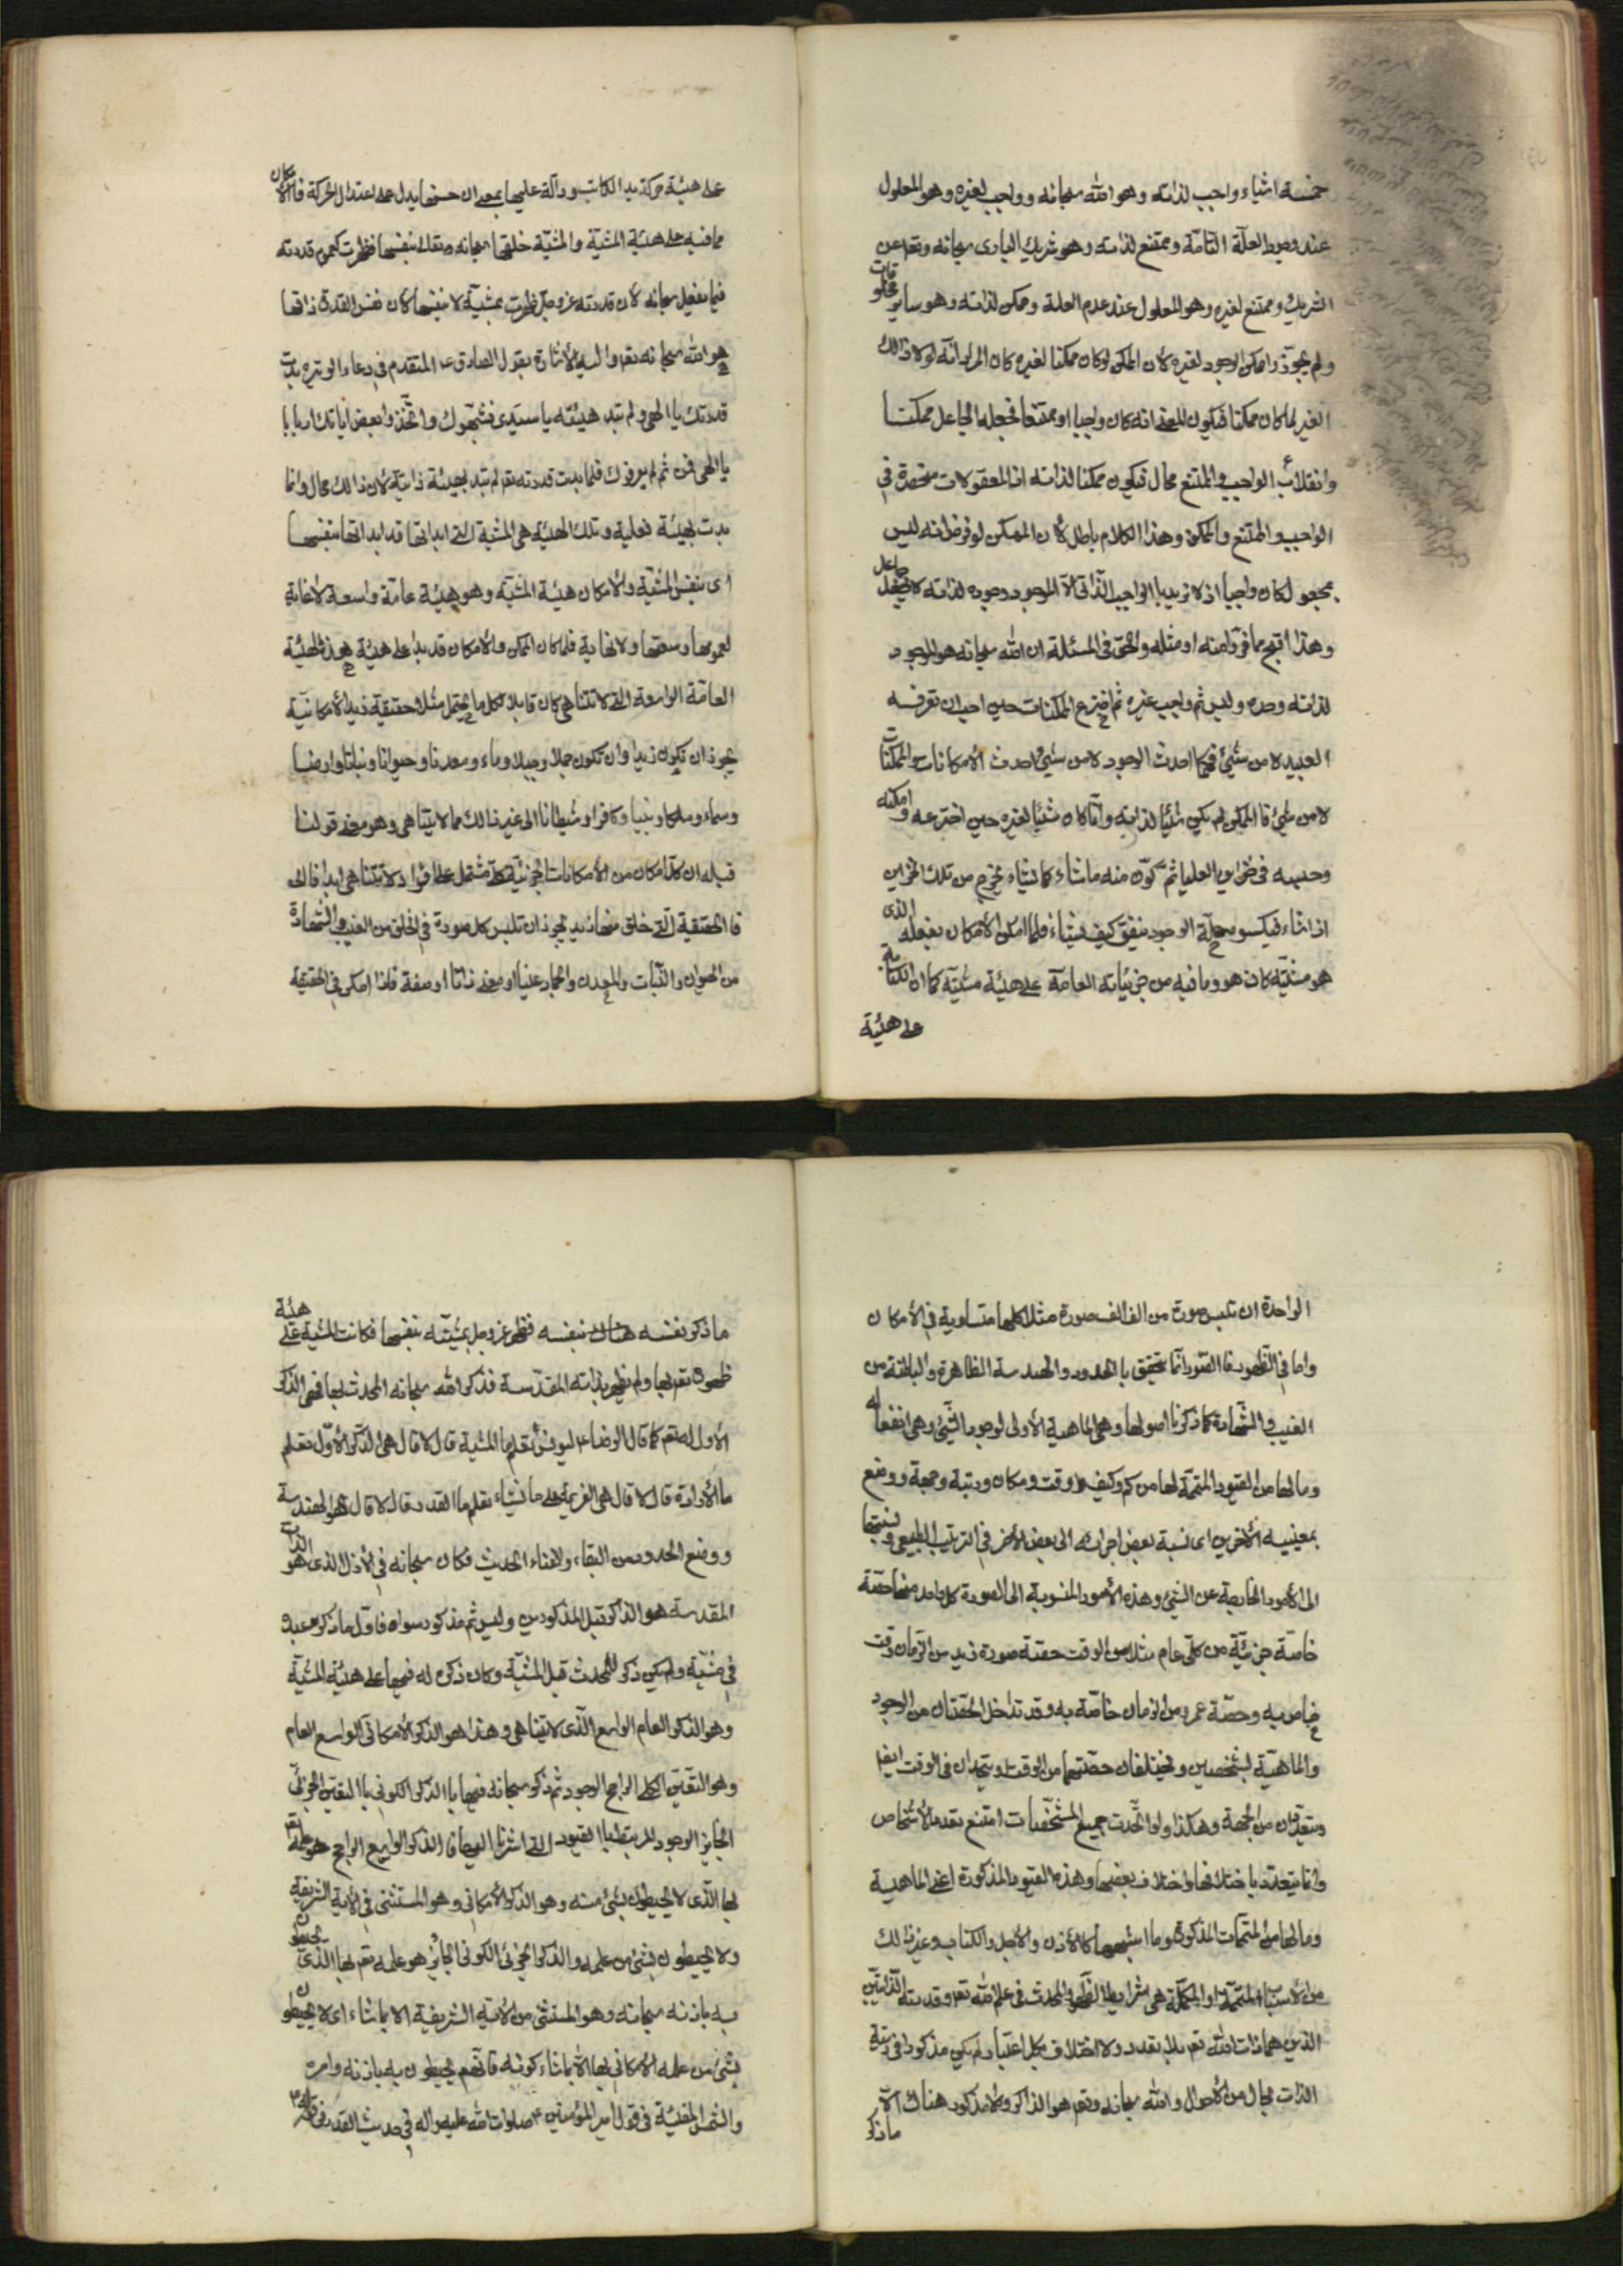 خمسة اشياء واجب لذاته وهو الله سبحانه وواجب لغيره وهو المعلول
عند وجود العلّة التامّة وممتنع لذاته وهو شريك البارى سبحانه وتعا عن
الشريك وممتنع لغيره وهو المعلول عند عدم العلة وممكن لذاته وهو ساير مخلوقات
ولم يجوّزوا ممكن الوجود لغيره لأن الممكن لو كان ممكنا لغيره كان المراد انّه لولا ذالك
الغير لما كان ممكنا فيكون المعنى انه كان واجبا او ممتنعا فجعله الجاعل ممكنا
وانقلاب الواجب والممتنع محال فيكون ممكنا لذاته اذ المعقولات منحصرة فى
الواجب والممتنع والممكن وهذا الكلام باطل لأن الممكن لو فرض انه ليس
بمجعول لكان واجبا اذ لا نريد بالواجب الذاتى الّا الموجود وجوده لذاته لا بجعل جاعل
وهذا اقبح مما فرّوا منه او مثله والحق فى المسئلة ان الله سبحانه هو الموجود
لذاته وحده وليس ثم واجب غيره ثم اخترع الممكنات حين احب ان تعرفه
العبيد لا من شىء فكما احدث الوجود لا من شىء احدث الأمكانات والممكنات
لا من شىء فالممكن لم يكن شيئا لذاته وانّما كان شيئا لغيره حين اخترعه وامكنه
وحبسه فى خزاين العليا ثم كوّن منه ما شاء كما شاء يخرج من تلك الخزاين
اذا شاء فيكسوه حلّة الوجود ينفق كيف يشاء فلما امكن الأمكان بفعله الذى
هو مشيّته كان هو وما فيه من جزئياته العامة على هيئة مشيّته كما ان الكتابة
على هيئة
على هيئة حركة يد الكاتب ودالّة عليها بمعنى ان حسنها يدل على اعتدال الحركة فالأمكان
بما فيه على هيئة المشيّة والمشيّة خلقها سبحانه وتعالى بنفسها فظهرت كعموم قدرته
فيما يفعل سبحانه لأن قدرته عز وجل ظهرت بمشيّته لا بنفسها لأن نفس القدرة ذاتها
هو الله سبحانه تعم واليه الأشارة بقول الصادق ع المتقدم فى دعاء الوتره بدت
قدرتك يا الهى ولم تبد هيئته يا سيدى فشبّهوك واتخذوا بعض اياتك اربابا
يا الهى فمن ثم لم يعرفوك فلما بدت قدرته تعم لم تبد بهيئة ذاتية لأن ذالك محال وانما
بدت بهيئة فعلية وتلك الهيئة هى المشية التى ابداها قد ابداها بنفسها
اى بنفس المشيّة والأمكان هيئة المشيّة وهو هيئة عامة واسعة لا غاية
لعمومها وسعتها ولا نهاية فلما كان الممكن والأمكان قد بدئا على هيئة هذه الهيئة
العامّة الواسعة التى لا تتناهى كان قابلا لكل ما يحتمل مثلا حقيقية زيد الأمكانيّة
يجوز ان تكون زيدا وان تكون جملا وجبلا وماء ومعدنا وحيوانا ونباتا وارضا
وسماء وملكا ونبيا وكافرا وشيطانا الى غير ذالك مما لا يتناهى وهو معنى قولنا
قبله ان كل امكان من الأمكانات الجزئيّة كلّا مشتمل على افراد لا تتناهى ابدا فاذا
فالحقيقية التى خلق منها زيد يجوز ان تلبس كل صورة فى الخلق من الغيب والشهادة
من الحيوان والنّبات والمعدن والجماد عينا او معنى ذاتا او صفة فاذا امكن فى الحقيقة
الواحدة ان تلبس صورة من الف الف صورة مثلا كلها متساوية فى الأمكان
واما فى الظهور فالصور انّما تتحقق بالحدود والهندسة الظاهرة والباطنة من
الغيب والشهادة كما ذكرنا اصولها وهى الماهية الأولى لوجود الشىء وهى انفعاله
وما لها من القيود المتمّمة لها من كم وكيف ووقت ومكان ورتبة وجهة ووضع
بمعنييه الأخرين اى نسبة بعض اجزائه الى بعض الأخر فى الترتيب الطبيعى ونسبتها
الى الأمور الخارجة عن الشىء وهذه الأمور المنسوبة الى الصورة كل واحد منها حصّة
خاصّة جزئيّة من كلّى عام مثلا من الوقت حصّة صورة زيد من الزمان وقت
خاص به وحصّة عمرو من الزمان خاصّة به وقد تتداخل الحصّتان من الوجود
والماهيّة لشخصين ويختلفان حصّتهما من الوقت او يتحدان فى الوقت ايضا
ويتعدّدان من الجهة وهكذا ولو اتّحدت جميع المشخّصات امتنع تعدد الأشخاص
وانّما يتعدّد باختلافها او اختلاف بعضها وهذه القيود المذكورة اعنى الماهية
وما لها من المتمّمات المذكورة وما اشبهها كالأذن والأجل والكتاب وغير ذالك
من الأسباب المتمّمة او المكمّلة هى شرايط الظهور والمحدث فى علم الله تعم وقدرته الذّاتيّين
الذين هما ذات الله تعم بلا تعدد ولا اختلاف بكل اعتبار لم يكن مذكورا فى رتبة
الذات بحال من الأحوال والله سبحانه وتعم هو الذاكر ولا مذكور هناك الّا
ما ذكر
ما ذكر نفسه هناك بنفسه فظهر عز وجل بمشيّته بنفسها فكانت المشية على هيئة
ظهوره تعم بها ولم يظهر بذاته المقدّسة فذكر الله سبحانه المحدث بها فهى الذكر
الأول له تعم كما قال الرضا ع ليونس تعلم ما المشية قال لا قال هى الذكر الأوّل تعلم
ما الأرادة قال لا قال هى العزيمة على ما يشاء تعلم ما القدر قال لا قال هو الهندسة
ووضع الحدود من البقاء والفناء الحديث فكان سبحانه فى الأزل الذى هو الذات
المقدسة هو الذاكر قبل المذكورين وليس ثم مذكور سواه فاوّل ما ذكر عبده
فى مشيّته ولم يكن ذكر للمحدث قبل المشيّة وكان ذكره له فيها على هيئة المشيّة
وهو الذكر العام الواسع الّذى لا يتناهى وهذا هو الذكر الأمكانى الواسع العام
وهو التعيّن الكلى الراجح الوجود ثم ذكره سبحانه فيها بالذكر الكونى بالتعيّن الجزئىّ
الجايز الوجود المرتبط بالقيود التى اشرنا اليها فالذكر الواسع الراجح هو علمه تعم
بها الّذى لا يحيطون بشىء منه وهو الذكر الأمكانى وهو المستثنى فى الأية الشريفة
ولا يحيطون بشىء من علمه والذكر الجزئى الكونى الجايز هو علمه تعم بها الذى يحيطون
به باذنه سبحانه وهو المستثنى من الأية الشريفية الا بما شاء اى لا يحيطون
بشىء من علمه الأمكانى بها الّا بما شاء كونه فانّهم يحيطون به باذنه وامره
والشمس المضيئة فى قول امير المؤمنين ع صلوات الله عليه واله فى حديث القدر فى